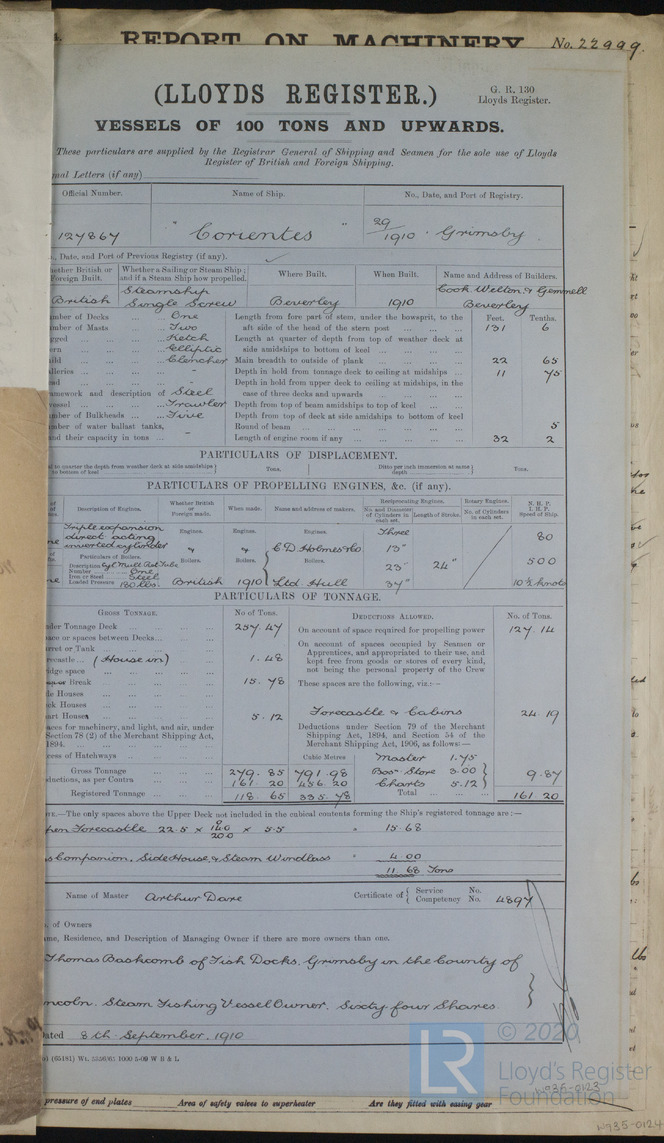 REPORT ON MACHINERY No. 22999.
(LLOYDS REGISTER.)
G. R. 130
Lloyds Register.
VESSELS OF 100 TONS AND UPWARDS.
These particulars are supplied by the Registrar General of Shipping and Seamen for the sole use of Lloyds
Register of British and Foreign Shipping.
Letters (if any)
Official Number. Name of Ship. No., Date, and Port of Registry.
127867 " Corientes " 29/1910 Grimsby
Date, and Port of Previous Registry (if any).
British or Foreign Built. Whether a Sailing or Steam Ship; and if a Steam Ship how propelled. Where Built. When Built. Name and Address of Builders.
British Steamship Single Screw Beverley 1910 Cook, Welton & Gemmell Beverley
Number of Decks One
Number of Masts Two
Ketch
Elliptic
Clencher
Galleries -
Framework and description of Steel
vessel Trawler
Number of Bulkheads Five
Number of water ballast tanks,
and their capacity in tons -
Feet. Tenths.
Length from fore part of stem, under the bowsprit, to the
aft side of the head of the stern post 131 6
Length at quarter of depth from top of weather deck at
side amidships to bottom of keel
Main breadth to outside of plank 22 65
Depth in hold from tonnage deck to ceiling at midships 11 75
Depth in hold from upper deck to ceiling at midships, in the
case of three decks and upwards
Depth from top of beam amidships to top of keel
Depth from top of deck at side amidships to bottom of keel
Round of beam 5
Length of engine room if any 32 2
PARTICULARS OF DISPLACEMENT.
to quarter the depth from weather deck at side amidships to bottom of keel Tons. Ditto per inch immersion at same depth Tons.
PARTICULARS OF PROPELLING ENGINES, &c. (if any).
Description of Engines. Whether British or Foreign made. When made. Name and address of makers. Reciprocating Engines. No. and Diameter of Cylinders in each set. Length of Stroke. Rotary Engines. No. of Cylinders in each set. N. H. P. I. H. P. Speed of Ship.
Triple expansion Engines. Engines. Engines. Three
direct acting 80
inverted cylinder " " C. D. Holmes & Co. 13"
Particulars of Boilers. Boilers. Boilers. Boilers.
Description 23" 24" 500
Number One
Iron or Steel Steel
Loaded Pressure 180 lbs. British 1910 Ltd. Hull 37" 10½ knots
PARTICULARS OF TONNAGE.
GROSS TONNAGE. No of Tons. DEDUCTIONS ALLOWED. No. of Tons.
Under Tonnage Deck 257.47
Space or spaces between Decks
Turret or Tank
Forecastle (House in) 1.48
Bridge space
Break 15.78
Side Houses
Deck Houses
Chart Houses 5.12
Spaces for machinery, and light, and air, under
Section 78 (2) of the Merchant Shipping Act,
1894.
Excess of Hatchways
On account of space required for propelling power 127.14
On account of spaces occupied by Seamen or
Apprentices, and appropriated to their use, and
kept free from goods or stores of every kind,
not being the personal property of the Crew
These spaces are the following, viz:-
Forecastle & Cabins 24.19
Deductions under Section 79 of the Merchant
Shipping Act, 1894, and Section 54 of the
Merchant Shipping Act, 1906, as follows:—
Cubic Metres Master 1.75
Gross Tonnage 279.85 791.98 Bosn Store 3.00 9.87
Deductions, as per Contra 161.20 456.20 Charts 5.12
Registered Tonnage 118.65 335.78 Total 161.20
NOTE.—The only spaces above the Upper Deck not included in the cubical contents forming the Ship's registered tonnage are:—
Open Forecastle 22.5 × × 5.5 15.68
Companion, Side House, & Steam Windlass " 4.00
Tons
Name of Master Arthur Dare Certificate of { Service No. Competency No. 4897
of Owners
Name, Residence, and Description of Managing Owner if there are more owners than one.
Thomas Bascomb of Fish Docks, Grimsby in the County of
Lincoln. Steam Fishing Vessel Owner. Sixty four Shares.
Dated 8th September, 1910
(65181) 1000 5-09 W B & L
© 2020
LR
Lloyd's Register
Foundation
pressure of end plates Area of safety valves to superheater Are they fitted with easing gear
W735-0123
W735-0124